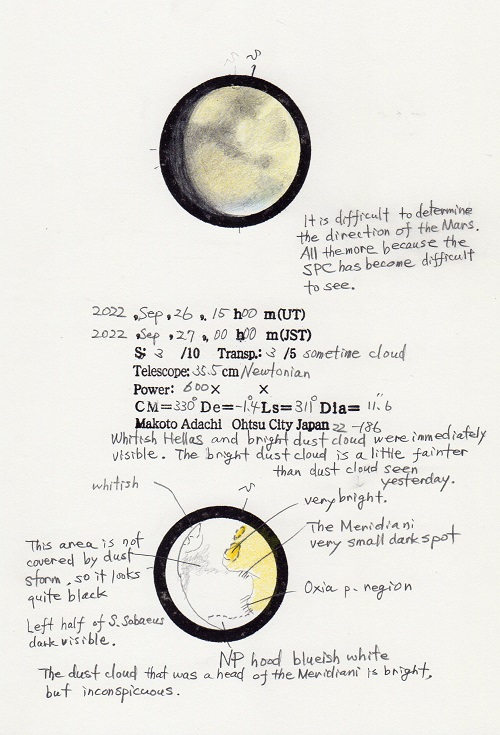 S
It is difficult to determine
the direction of the Mars.
All the more because the
SPC has become difficult
to see.
2022, Sep, 26, 15 h 00 m (UT)
2022, Sep, 27, 00 h 00 m (JST)
S: 3 /10 Transp.: 3 /5 sometime cloud
Telescope: 35.5 cm Newtonian
Power: 600× ×
CM=330° De=-1.4 Ls=311° Dia= 11".6
Makoto Adachi Ohtsu City Japan 22-186
Whitish Hellas and bright dust cloud were immediately
visible. The bright dust cloud is a little fainter
than dust cloud seen
yesterday.
whitish
S
very bright.
The Meridiani
very small dark spot
This area is not
covered by dust
storm, so it looks
quite black
Oxia p. region
Left half of S. Sabaeus
dark visible.
NP hood blueish white
The dust cloud that was a head of the Meridiani is bright,
but inconspicuous.